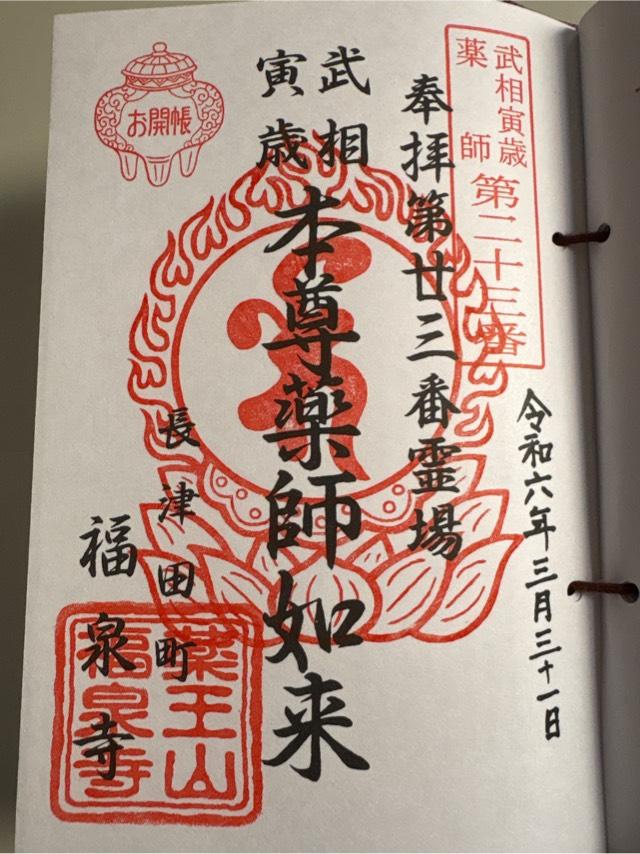 武相寅歳
薬師
第二十三番
令和六年三月三十一日
奉拝第廿三番霊場
武相
寅歳
本尊薬師如来
長津田町
福泉寺
お開帳
薬王山
福泉寺